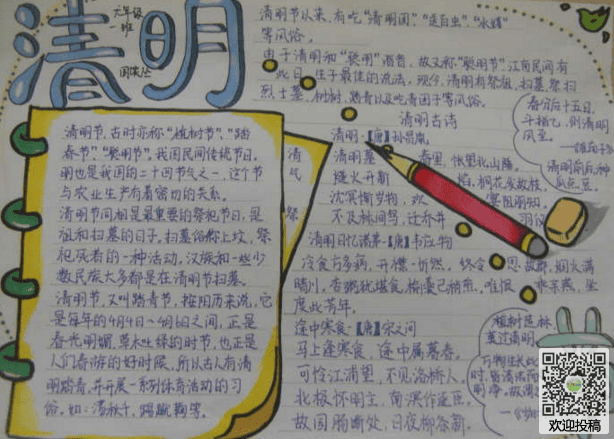 清明
六年级
一班
清明节以来,有吃"清明团"
等风俗。
由于清明和"聪明"谐音,故又称"聪明节",江南民间有
此日 生子最佳的说法。现今,清明有祭祖、扫墓、祭扫
烈士墓、植树、踏青以及吃青团子等风俗。
清明节,古时亦称"植树节"、"踏
春节"、"聪明节"。我国民间传统节日。
明也是我国的二十四节气之一,这个节
与农业生产有着密切的关系。
清明节同相是最重要的祭祀节日,是
祖和扫墓的日子。扫墓俗称上坟,祭
祀死者的一种活动。汉族和一些少
数民族大多都是在清明节扫墓。
清明节,又叫踏青节,按阳历来说,它
是每年的4月4日~4月6日之间,正是
春光明媚,草木吐绿的时节,也正是
人们春游的好时候,所以古人有清
明踏青,并开展一系列体育活动的习
俗。如:荡秋千、踢蹴鞠等。
清明古诗
清明·【唐】孙昌胤
清明暮 春里,怅望北山陲。
燧火开新 焰,桐花发故枝。
沉冥惭岁物,欢 宴阻朋知。
不及林间鸟,迁乔并 羽仪
清明日忆诸弟-【唐】韦应物
冷食方多病,开襟一忻然。终令 思故郡,烟火满
晴川。杏粥犹堪食,榆羹已稍煎。唯恨 乖亲燕,坐
度此芳年。
途中寒食·【唐】宋之问
马上逢寒食,途中属暮春。
可怜江浦望,不见洛桥人。
北极怀明主,南溟作逐臣。
故园肠断处,日夜柳条新。
春分后十五日,
斗指乙,则清明
风至。
清明前后,种
瓜点豆。
植树造林,
莫过清明。
欢迎投稿